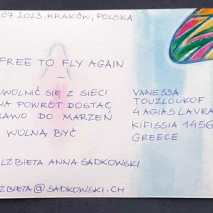 07.2023, KRAKÓW, POLSKA
FREE TO FLY AGAIN
WOLNIĆ SIĘ Z SIECI
NA POWRÓT DOSTAĆ
RAWO DO MARZEŃ
WOLNĄ BYĆ
LŻBIETA ANNA SADKOWSKI
LZBIETA@SADKOWSKI.CH
VANESSA
TOUZLOUKOF
4 AGIAS LAVRA
KIFISSIA 1456
GREECE